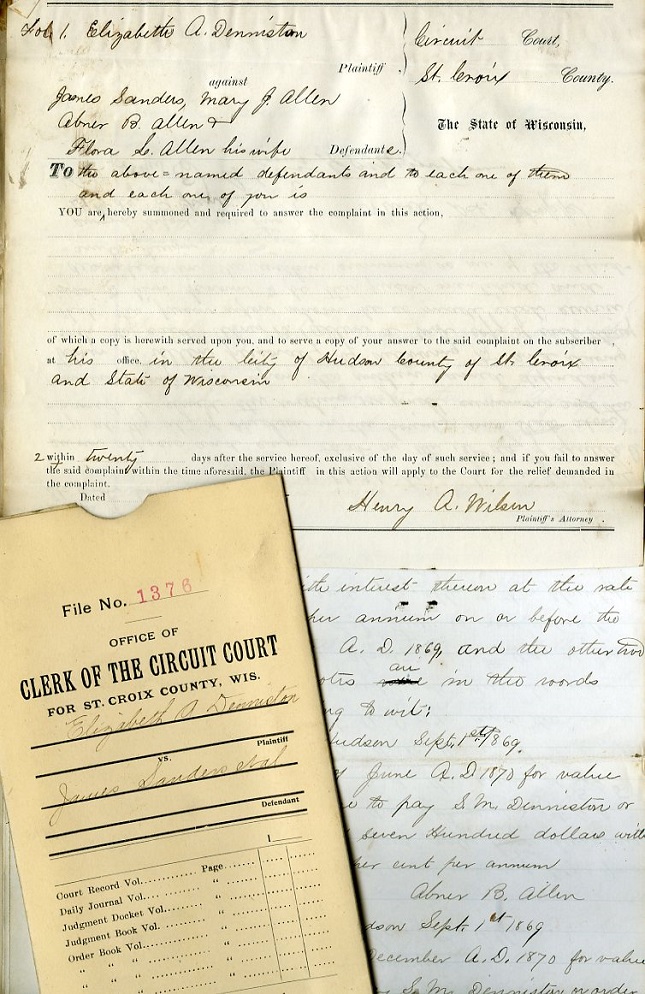 Fol 1. Elizabeth A. Denniston
Plaintiff
against
James Sanders, Mary J. Allen
Abner B. Allen &
Flora L. Allen his wife Defendants.
Circuit Court,
St. Croix County.
The State of Wisconsin,
To the above-named defendants and to each one of them
and each one of you is
YOU are hereby summoned and required to answer the complaint in this action,
of which a copy is herewith served upon you, and to serve a copy of your answer to the said complaint on the subscriber ,
at his office in the City of Hudson County of St. Croix
and State of Wisconsin
2 within twenty days after the service hereof, exclusive of the day of such service ; and if you fail to answer
the said complaint within the time aforesaid, the Plaintiff in this action will apply to the Court for the relief demanded in
the complaint.
Dated
Henry A. Wilson
Plaintiff's Attorney .
File No. 1376
OFFICE OF
CLERK OF THE CIRCUIT COURT
FOR ST. CROIX COUNTY, WIS.
Elizabeth A Denniston
Plaintiff
vs.
James Sanders et al
Defendant
1
Court Record Vol. Page
Daily Journal Vol. "
Judgment Docket Vol. "
Judgment Book Vol. "
Order Book Vol. "
" " "
" " "
interest thereon at the rate
per annum on or before the
A. D. 1869, and the other two
are in the words
to wit:
Hudson Sept. 1st 1869.
June A.D. 1870 for value
to pay S. M. Denniston or
seven Hundred dollars with
per cent per annum
Abner B. Allen
Sept. 1st 1869
December A.D. 1870 for value
S. M. Denniston or order